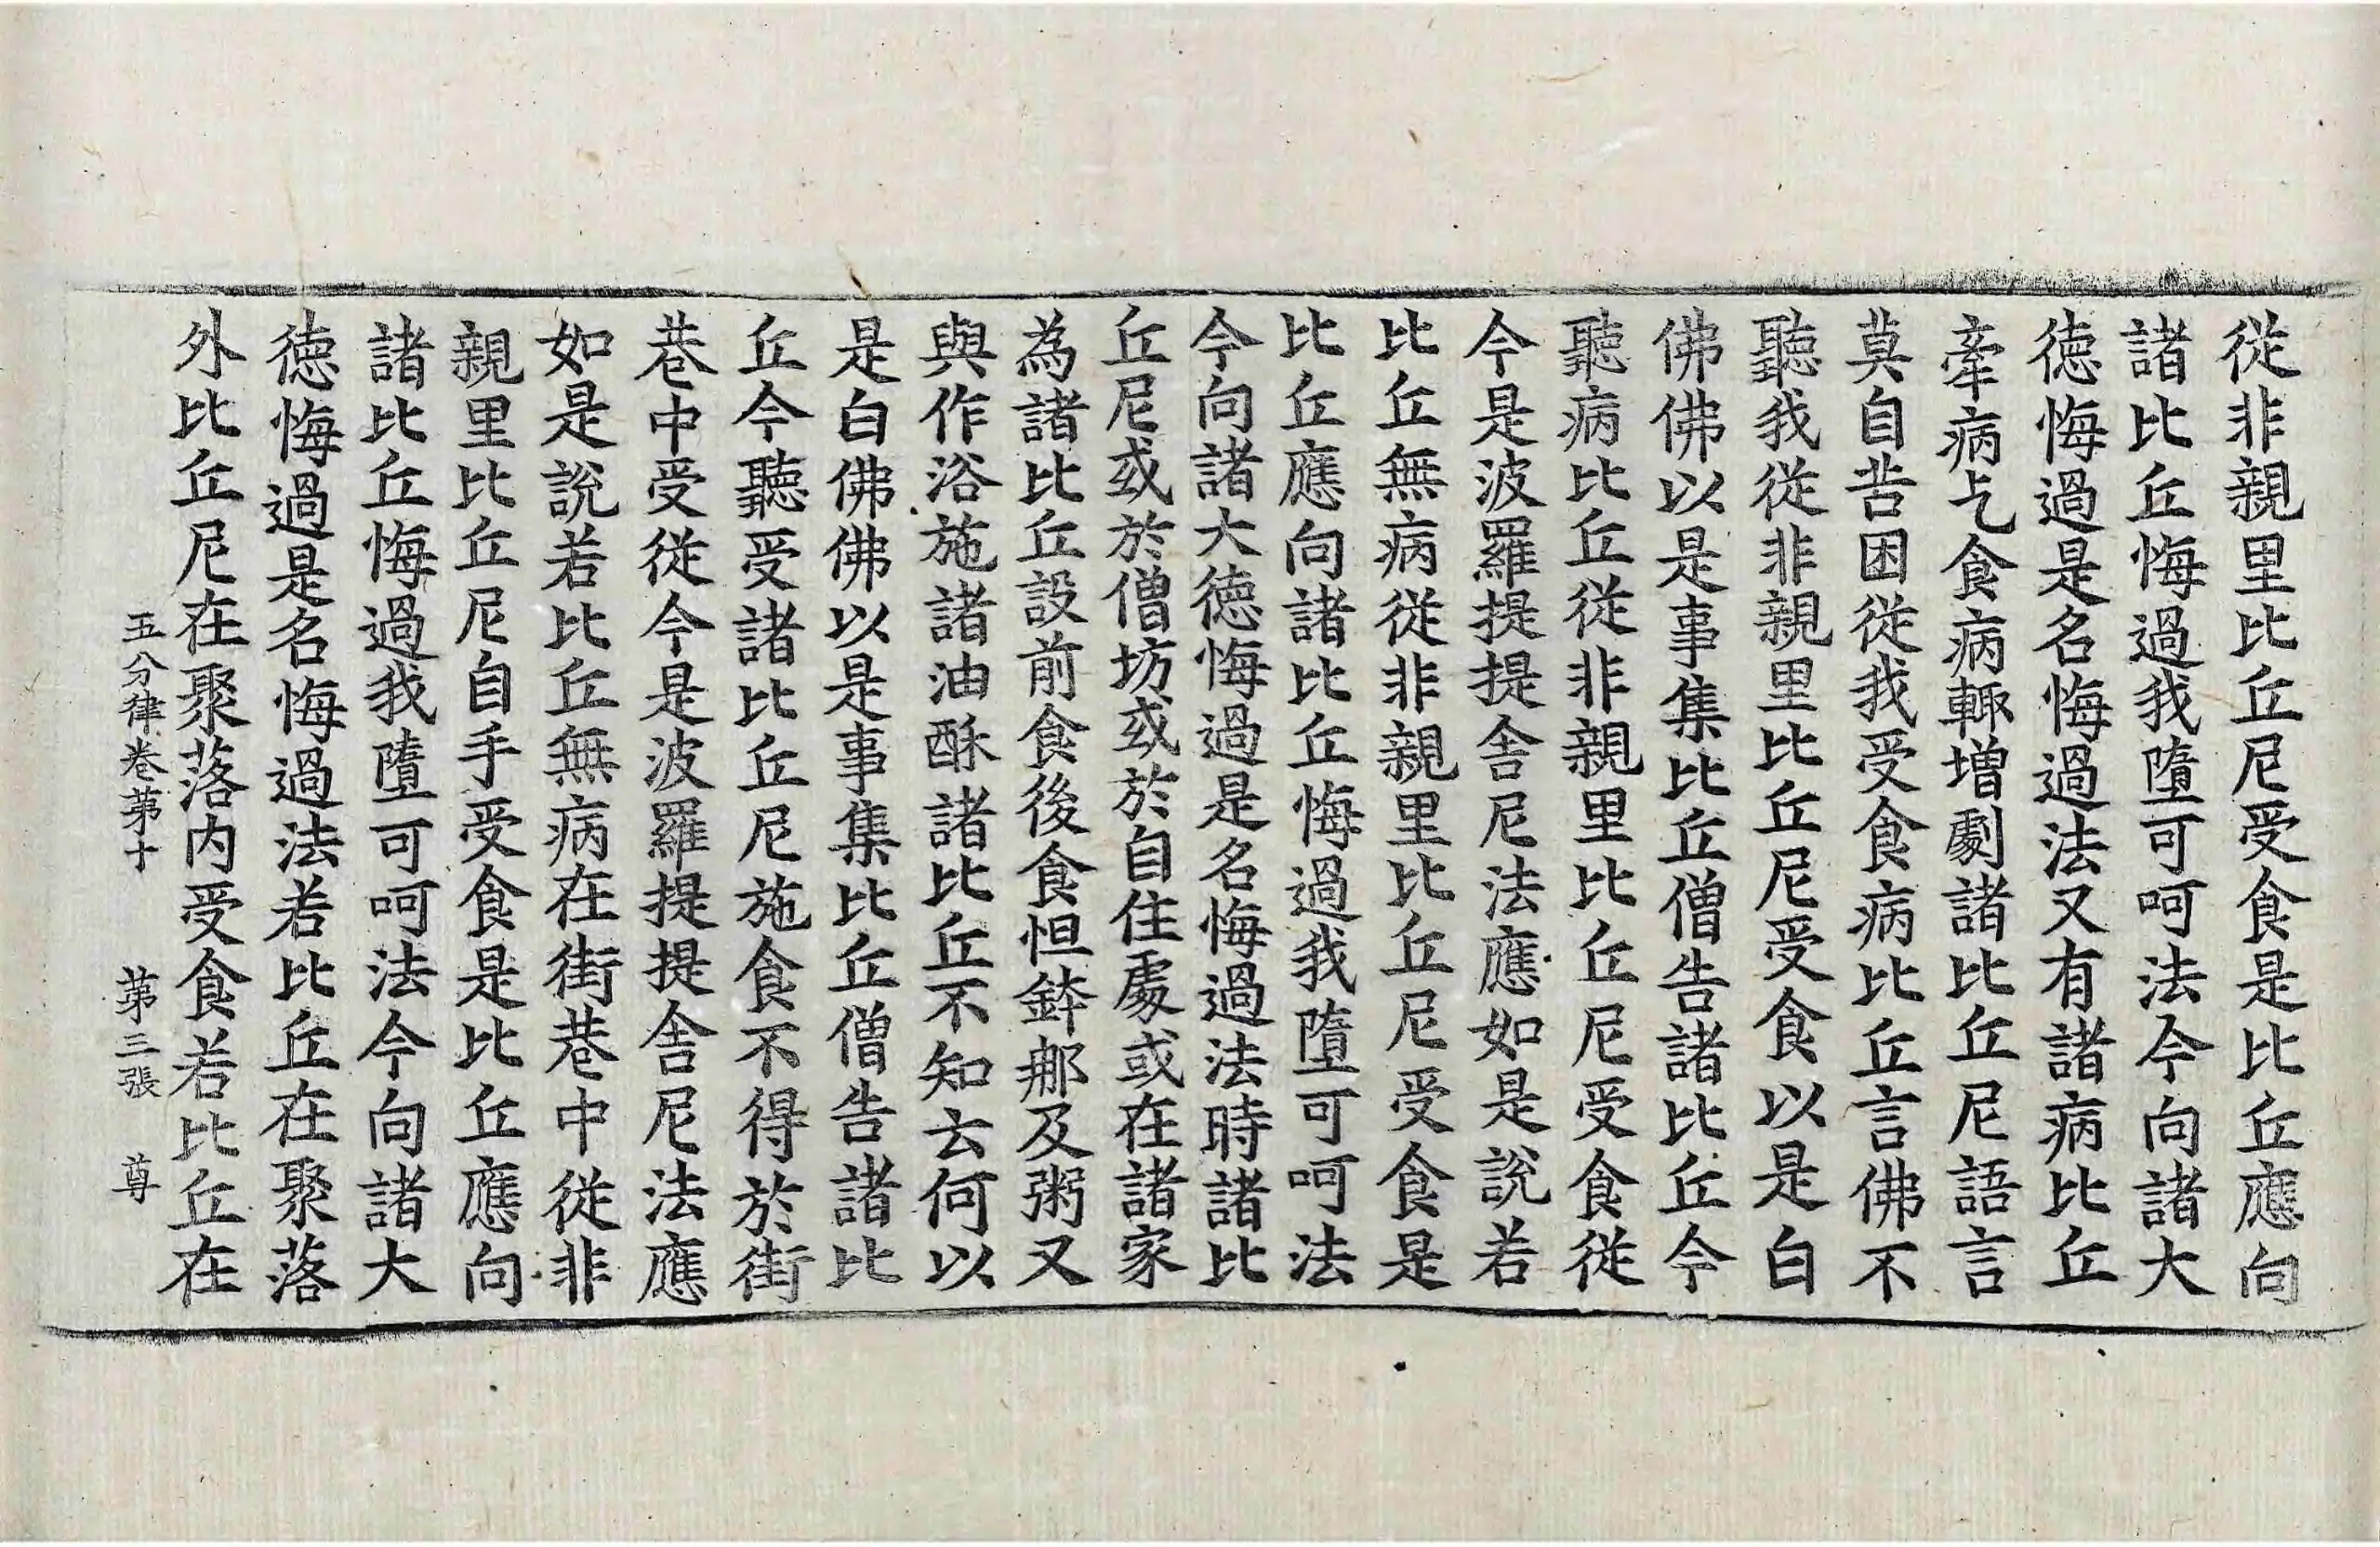 從非親里比丘尼受食是比丘應向
諸比丘悔過我墮可呵法今向諸大
德悔過是名悔過法又有諸病比丘
牽病乞食病輙增劇諸比丘尼語言
莫自苦困從我受食病比丘言佛不
聽我從非親里比丘尼受食以是白
佛佛以是事集比丘僧告諸比丘今
聽病比丘從非親里比丘尼受食從
今是波羅提提舍尼法應如是說若
比丘無病從非親里比丘尼受食是
比丘應向諸比丘悔過我墮可呵法
今向諸大德悔過是名悔過法時諸比
丘尼或於僧坊或於自住處或在諸家
為諸比丘設前食後食怛鉢那及粥又
與作浴施諸油酥諸比丘不知云何以
是白佛佛以是事集比丘僧告諸比
丘今聽受諸比丘尼施食不得於街
巷中受從今是波羅提提舍尼法應
如是說若比丘無病在街巷中從非
親里比丘尼自手受食是比丘應向
諸比丘悔過我墮可呵法今向諸大
德悔過是名悔過法若比丘在聚落
外比丘尼在聚落內受食若比丘在
五分律卷苐十 苐三張 尊